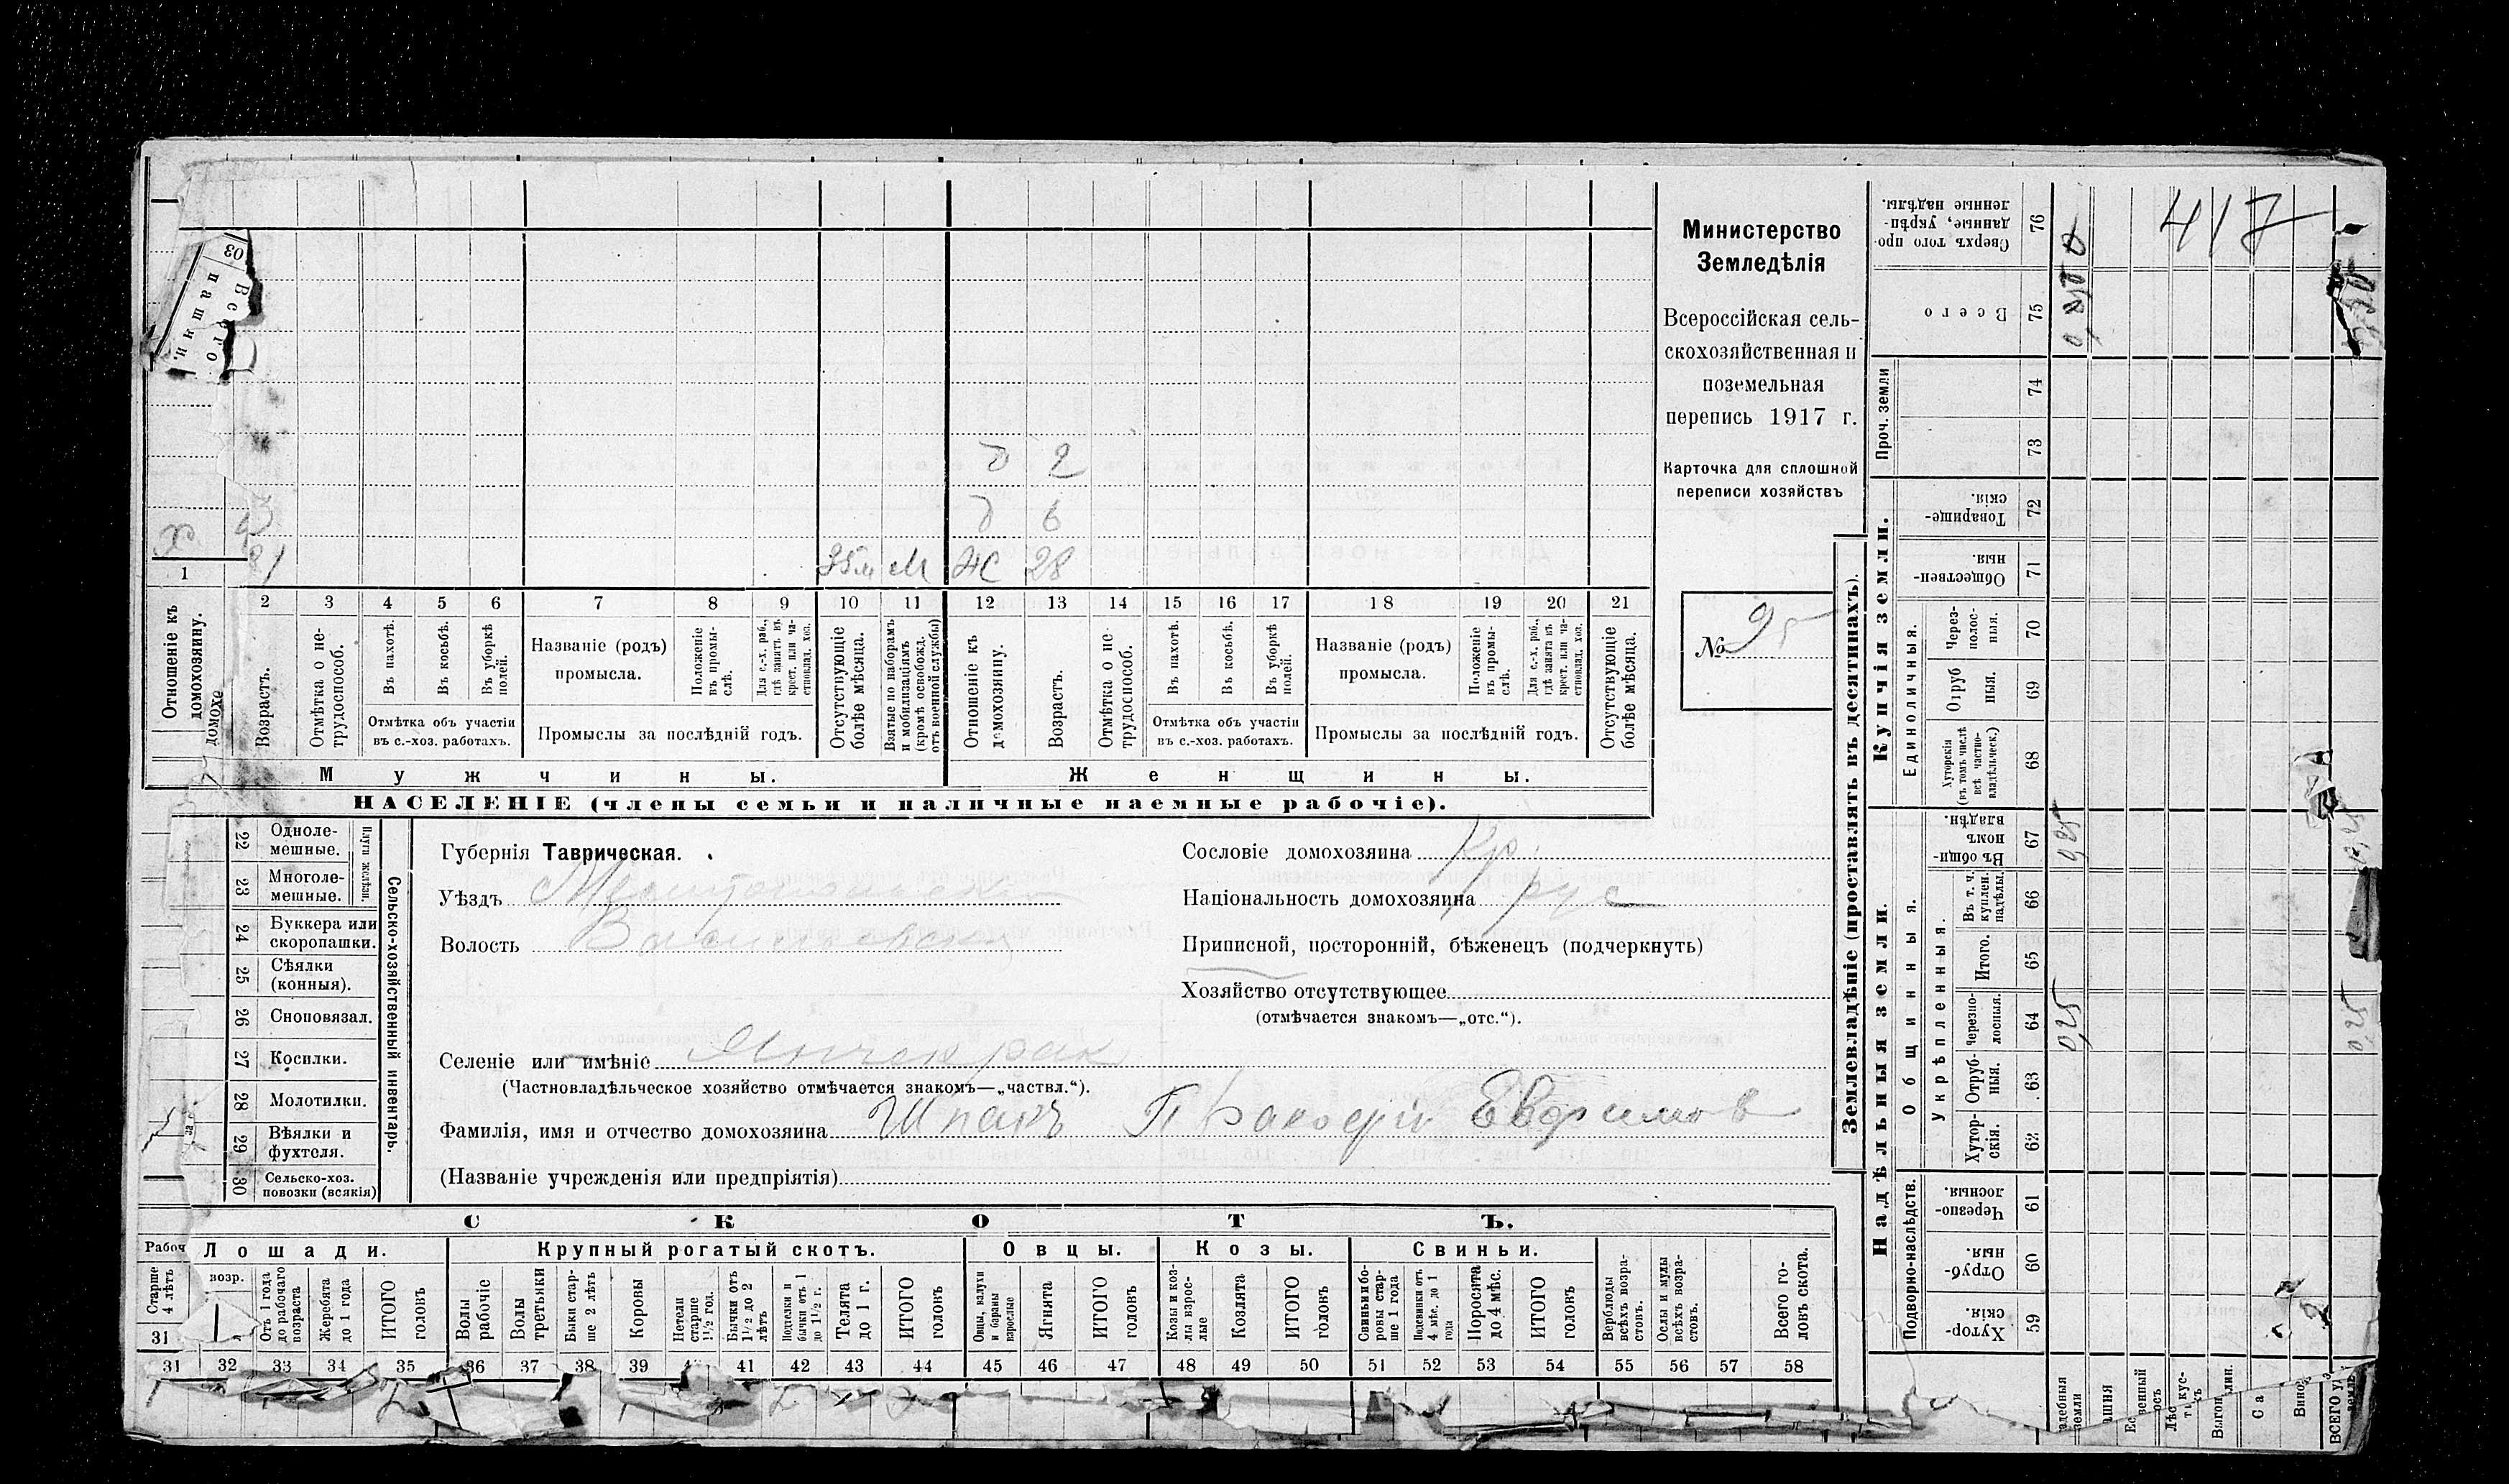 417
Министерство
Земледѣлія
Всероссійская сель-
скохозяйственная и
поземельная
перепись 1917 г.
Карточка для сплошной
переписи хозяйствъ
№ 95
03
Всего
пашни.
д 2
д 6
х
31 35 м М Ж 28
1 2 3 4 5 6 7 8 9 10 11 12 13 14 15 16 17 18 19 20 21
Отношеніе къ домохозяину.
Возрастъ.
Отмѣтка о не-трудоспособ.
Въ пахотѣ.
Въ косьбѣ.
Въ уборкѣ полей.
Отмѣтка объ участіи
въ с.-хоз. работахъ.
Названіе (родъ)
промысла.
Положеніе въ промы-слѣ.
Для с.-х. раб., гдѣ занятъ въ крест. или ча-стновлад. хоз.
Промыслы за послѣдній годъ.
Отсутствующіе болѣе мѣсяца.
Взятые по наборамъ и мобилизаціямъ (кромѣ освобожд. отъ военной службы)
Отношеніе къ домохозяину.
Возрастъ.
Отмѣтка о не-трудоспособ.
Въ пахотѣ.
Въ косьбѣ.
Въ уборкѣ полей.
Отмѣтка объ участіи
въ с.-хоз. работахъ.
Названіе (родъ)
промысла.
Положеніе въ промы-слѣ.
Для с.-х. раб., гдѣ занята въ крест. или ча-стновлад. хоз.
Промыслы за послѣдній годъ.
Отсутствующіе болѣе мѣсяца.
Мужчины.
Женщины.
НАСЕЛЕНІЕ (члены семьи и наличные наемные рабочіе).
Сельско-хозяйственный инвентарь.
Плуги желѣзн.
22 Одноле-
мешные.
23 Многоле-
мешные.
24 Буккера или
скоропашки.
25 Сѣялки
(конныя).
26 Сноповязал.
27 Косилки.
28 Молотилки.
29 Вѣялки и
фухтеля.
30 Сельско-хоз.
повозки (всякія)
Губернія Таврическая.
Уѣздъ Мелитопольскій
Волость Васильевская
Сословіе домохозяина Кр.
Національность домохозяина рус
Приписной, посторонній, бѣженецъ (подчеркнуть)
Хозяйство отсутствующее
(отмѣчается знакомъ—„отс.“).
Селеніе или имѣніе Янчекрак
(Частновладѣльческое хозяйство отмѣчается знакомъ—„частвл.“).
Фамилія, имя и отчество домохозяина Шпакъ Евфимов
(Названіе учрежденія или предпріятія)
СКОТЪ.
Рабоч Лошади.
Крупный рогатый скотъ.
Овцы.
Козы.
Свиньи.
Старше 4 лѣтъ
возр.
Отъ 1 года до рабочаго возраста
Жеребята до 1 года
ИТОГО головъ
Волы рабочіе
Волы третьяки
Быки стар-ше 2 лѣтъ
Коровы
Нетели старше 1½ год.
Бычки отъ 1½ до 2 лѣтъ
Подтелки и бычки отъ 1 до 1½ г.
Телята до 1 г.
ИТОГО головъ
Овцы, валухи и бараны взрослые
Ягнята
ИТОГО головъ
Козы и коз-лы взрос-лые
Козлята
ИТОГО головъ
Свиньи и бо-ровы стар-ше 1 года
Подсвинки отъ 4 мѣс. до 1 года
Поросята до 4 мѣс.
ИТОГО головъ
Верблюды всѣхъ возра-стовъ.
Ослы и мулы всѣхъ возра-стовъ.
Всего го-ловъ скота.
31
31 32 33 34 35 36 37 38 39 41 42 43 44 45 46 47 48 49 50 51 52 53 54 55 56 57 58
Землевладѣніе (проставлять въ десятинахъ).
Купчія земли.
Надѣльныя земли.
Сверхъ того про-данные, укрѣп-ленные надѣлы. 76
Всего 75
Проч. земли
74
73
Товарище-скія. 72
Обществен-ныя. 71
Единоличныя.
Через-полос-ныя. 70
Отруб-ныя. 69
Хуторскія (въ томъ числѣ всѣ частно-владѣльческ.) 68
Общинныя.
Въ общин-номъ владѣн. 67
Укрѣпленныя.
Въ т. ч. куплен. надѣлы. 66
Итого. 65
Черезпо-лосныя. 64
Отруб-ныя. 63
Хутор-скія. 62
Подворно-наслѣдств.
Черезпо-лосныя. 61
Отруб-ныя. 60
Хутор-скія. 59
0,25
0,25
0,25